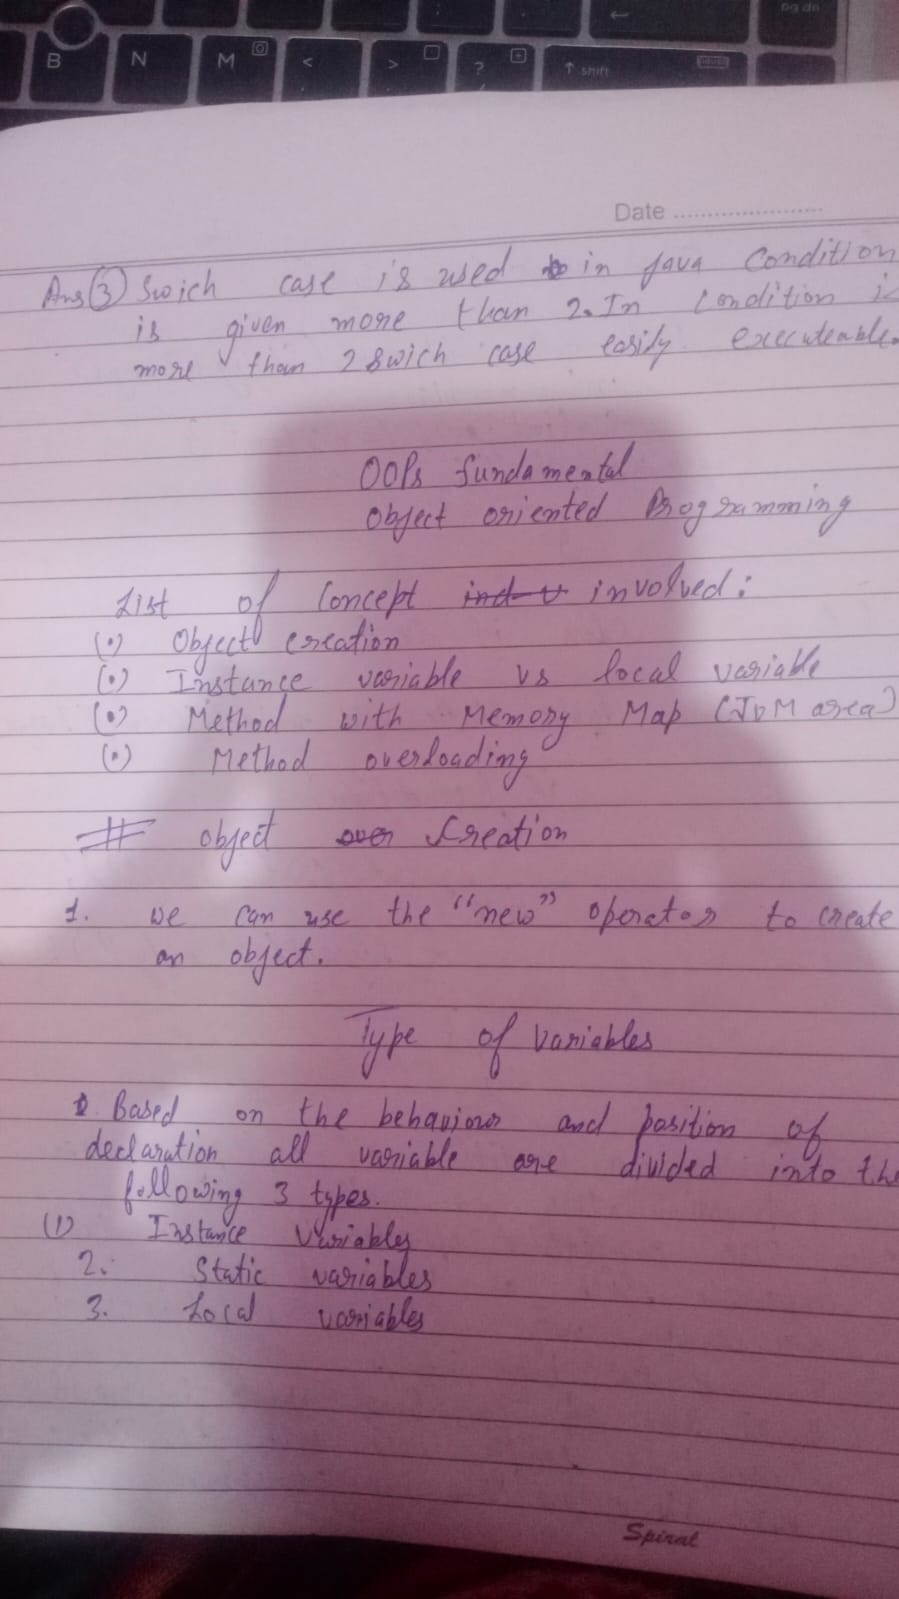 B N M < > ? ↑ shift ← pg dn
Date
Ans (3) Swich case is used in java Condition
is given more than 2. In Condition is
more than 2 Swich case easily executeable.
OOPs fundamental
Object oriented Programming
List of Concept involved:
(•) Object creation
(•) Instance variable vs local variable
(•) Method with Memory Map (JVM area)
(•) Method overloading
# object over Creation
1. we can use the "new" operator to create
an object.
Type of Variables
Based on the behaviour and position of
declaration all variable are divided into the
following 3 types.
(1) Instance Variables
2. Static variables
3. Local variables
Spiral